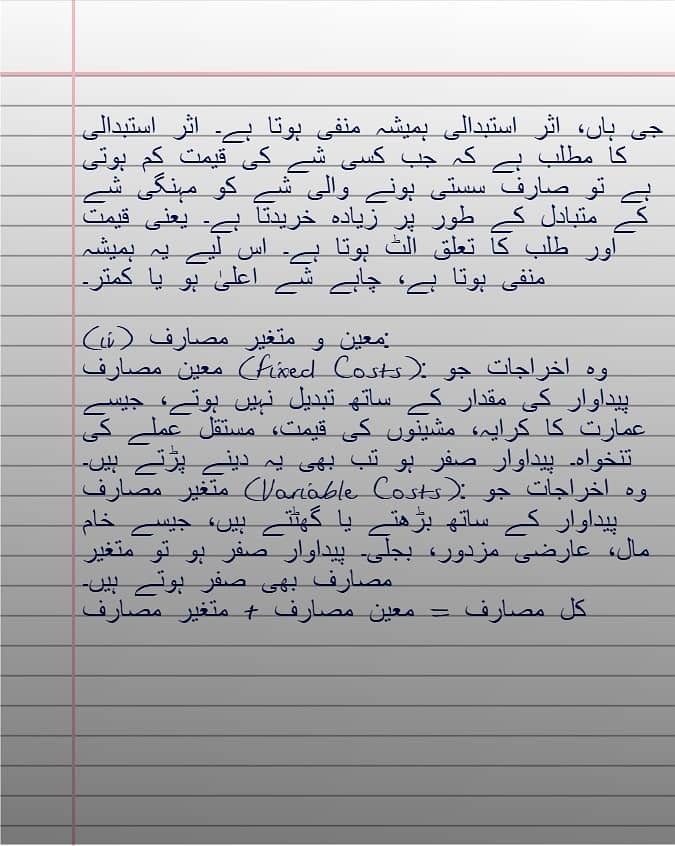 جی ہاں، اثر استبدالی ہمیشہ منفی ہوتا ہے۔ اثر استبدالی
کا مطلب ہے کہ جب کسی شے کی قیمت کم ہوتی
ہے تو صارف سستی ہونے والی شے کو مہنگی شے
کے متبادل کے طور پر زیادہ خریدتا ہے۔ یعنی قیمت
اور طلب کا تعلق الٹ ہوتا ہے۔ اس لیے یہ ہمیشہ
منفی ہوتا ہے، چاہے شے اعلیٰ ہو یا کمتر۔
(ii) معین و متغیر مصارف:
معین مصارف (Fixed Costs): وہ اخراجات جو
پیداوار کی مقدار کے ساتھ تبدیل نہیں ہوتے، جیسے
عمارت کا کرایہ، مشینوں کی قیمت، مستقل عملے کی
تنخواہ۔ پیداوار صفر ہو تب بھی یہ دینے پڑتے ہیں۔
متغیر مصارف (Variable Costs): وہ اخراجات جو
پیداوار کے ساتھ بڑھتے یا گھٹتے ہیں، جیسے خام
مال، عارضی مزدور، بجلی۔ پیداوار صفر ہو تو متغیر
مصارف بھی صفر ہوتے ہیں۔
کل مصارف = معین مصارف + متغیر مصارف